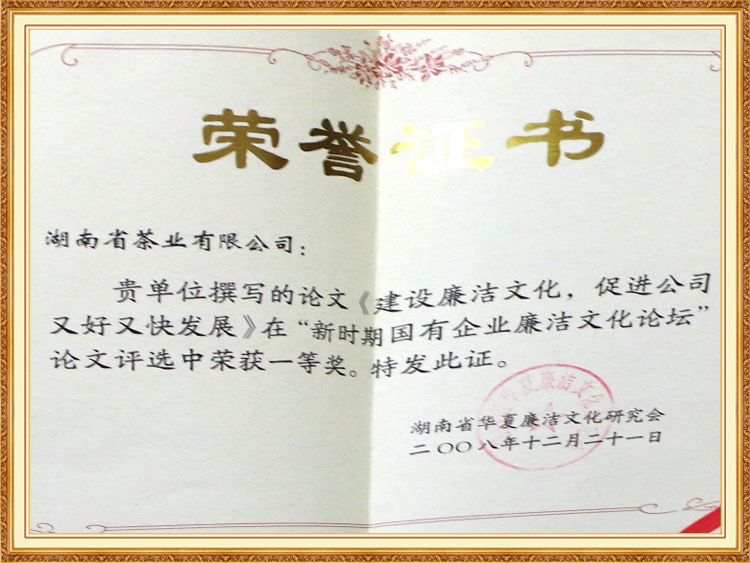 荣誉证书
湖南省茶业有限公司：
贵单位撰写的论文《建设廉洁文化，促进公司
又好又快发展》在“新时期国有企业廉洁文化论坛”
论文评选中荣获一等奖。特发此证。
湖南省华夏廉洁文化研究会
二〇〇八年十二月二十一日